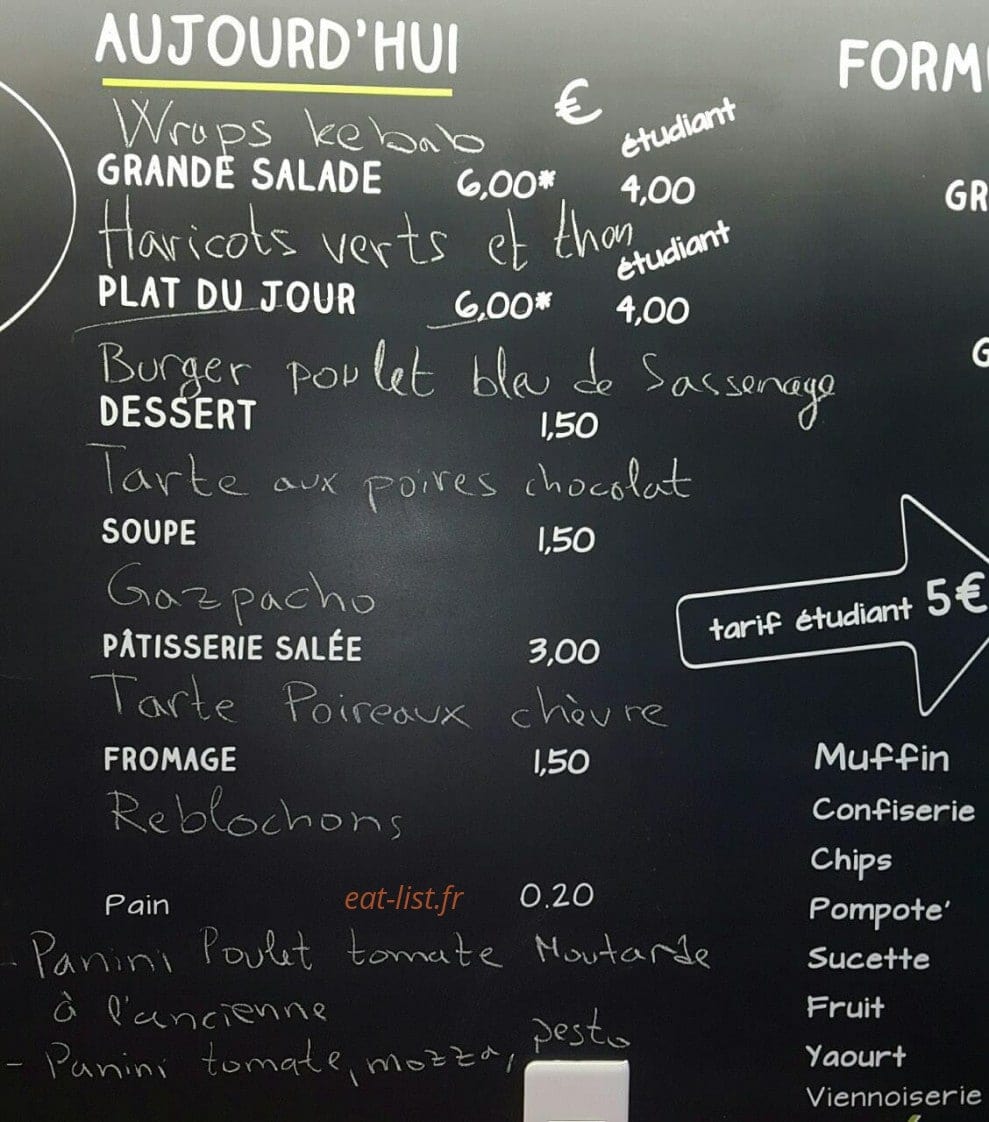 AUJOURD'HUI
€
Wraps kebab
étudiant
GRANDE SALADE 6,00* 4,00
Haricots verts et thon
étudiant
PLAT DU JOUR 6,00* 4,00
Burger poulet bleu de Sassenage
DESSERT 1,50
Tarte aux poires chocolat
SOUPE 1,50
Gazpacho
PÂTISSERIE SALÉE 3,00
Tarte Poireaux chèvre
FROMAGE 1,50
Reblochons
Pain 0.20
eat-list.fr
- Panini Poulet tomate Moutarde
à l'ancienne
- Panini tomate, mozza, pesto
FORM
GR
G
tarif étudiant 5€
Muffin
Confiserie
Chips
Pompote'
Sucette
Fruit
Yaourt
Viennoiserie